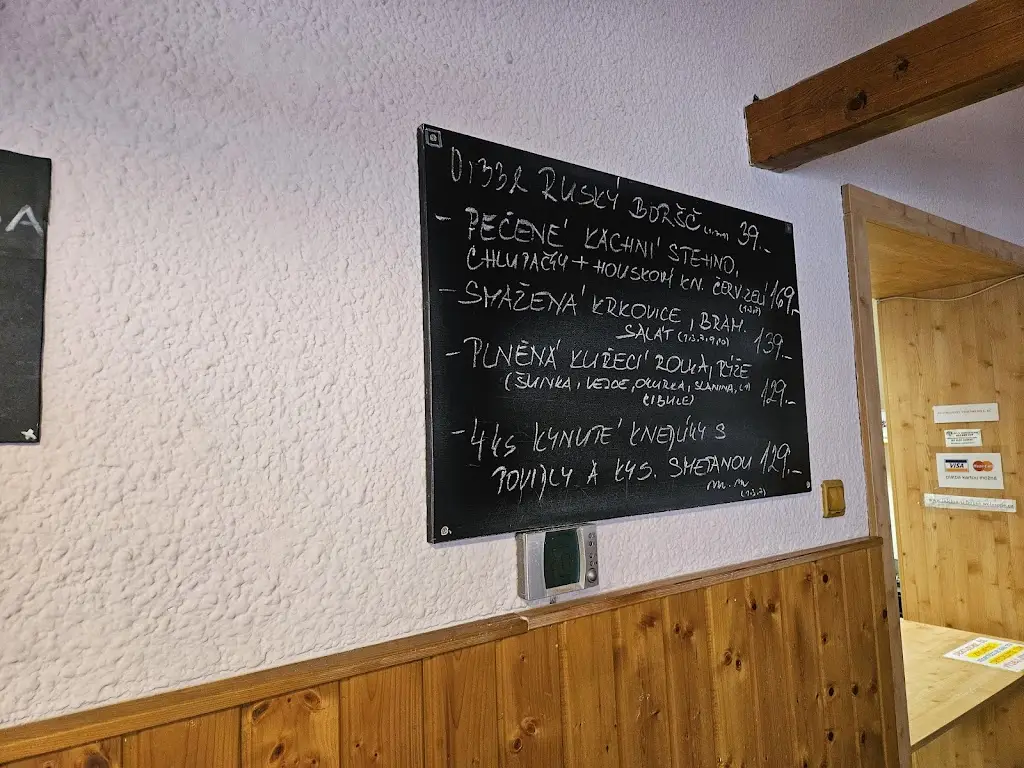 DA
RUSKÝ BORŠČ 39.-
- PEČENÉ KACHNÍ STEHNO,
CHLUPAČKY + HOUSKOVÝ KN. ČERV. ZELÍ 169,-
- SMAŽENÁ KRKOVICE, BRAM.
SALÁT (1.3.7.9.10) 139.-
- PLNĚNÁ KUŘECÍ ROLÁDA, RÝŽE
(ŠUNKA, VEJCE, OKURKA, SLANINA,
CIBULE) 129.-
- 4 ks KYNUTÉ KNEDLÍKY S
POVIDLY A KYS. SMETANOU 129.-
(1.3.7)
VISA